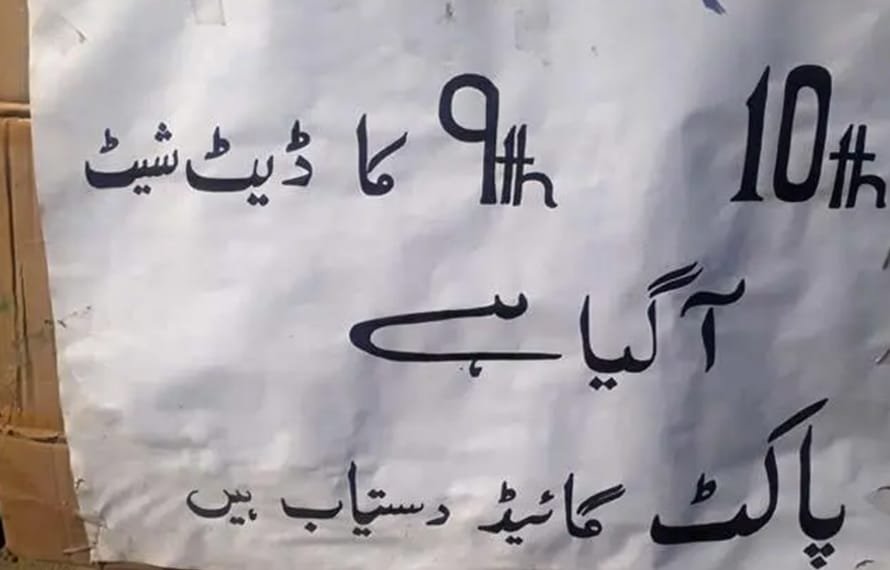 10th 9th کا ڈیٹ شیٹ
آگیا ہے
پاکٹ گائیڈ دستیاب ہیں